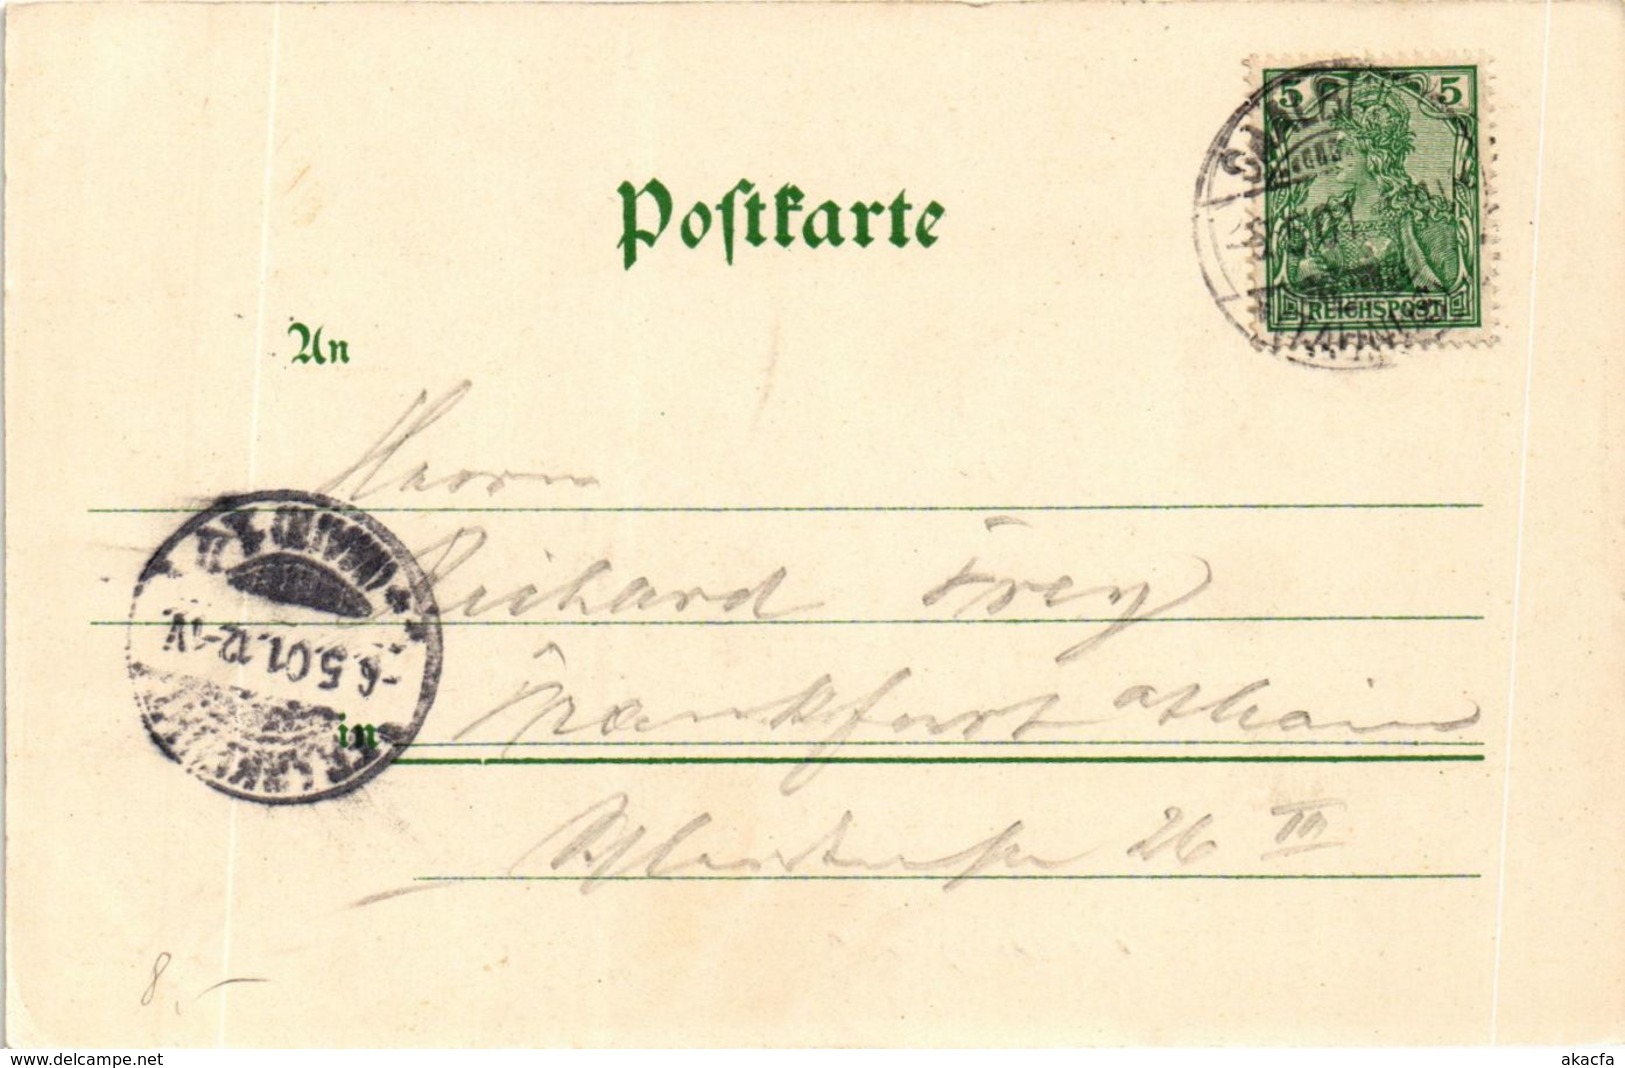 5 5
REICHSPOST
Postkarte
An
Herrn
Richard Frey
in Frankfurt a/Main
26 III
6.5.01.12-1V.
8.-
www.delcampe.net
akacfa